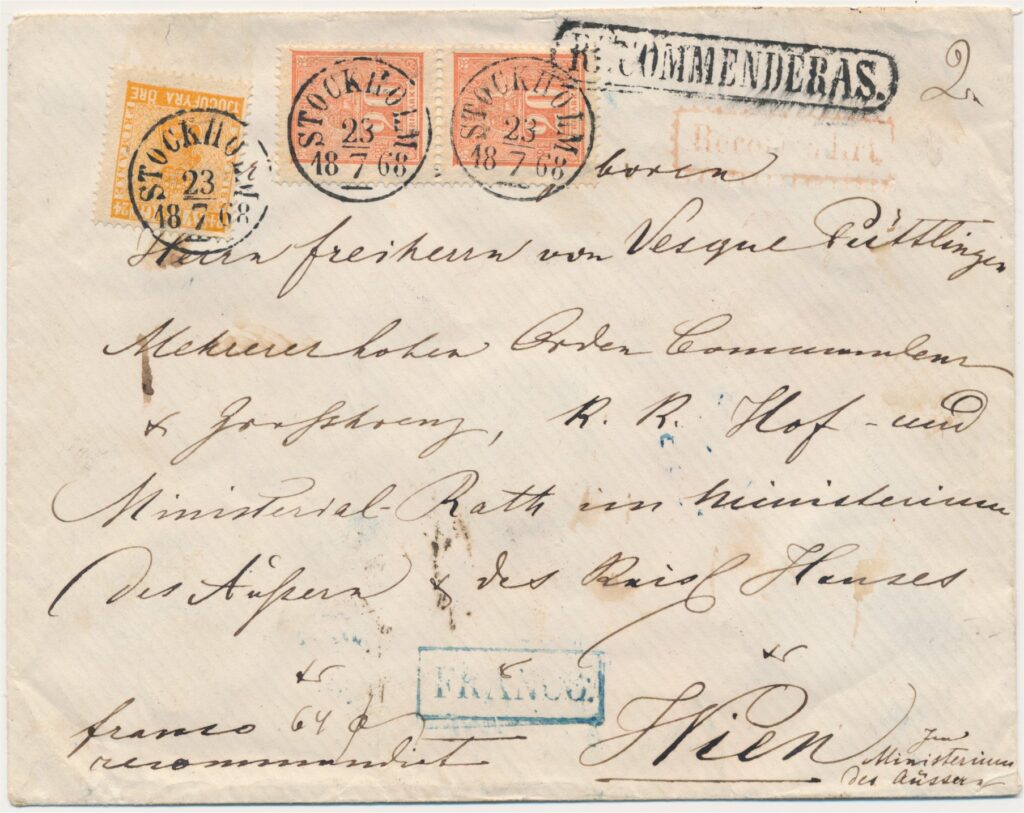 RECOMMENDERAS.
2
STOCKHOLM
23
18 7 68
STOCKHOLM
23
18 7 68
STOCKHOLM
23
18 7 68
TJUGUFYRA ÖRE
24
20
20
Recomandirt.
boren
Herrn freiherrn von Vesque Püttlingen
Mehrerer hohen Orden Commandeur
& Großkreuz, K. K. Hof- und
Ministerial-Rath im Ministerium
des Äußern & des Kaisl Hauses
&c &c &c
FRANCO.
franco 64 
recommandirt
Wien
Im
Ministerium
des Äussern